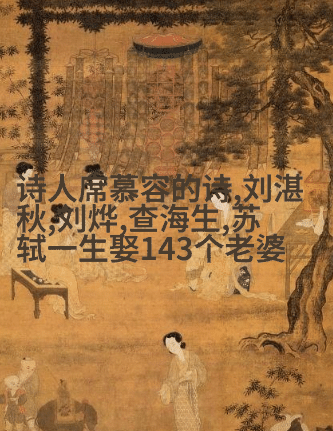 诗人席慕容的诗,刘湛
秋,刘烨,查海生,苏
轼一生娶143个老婆